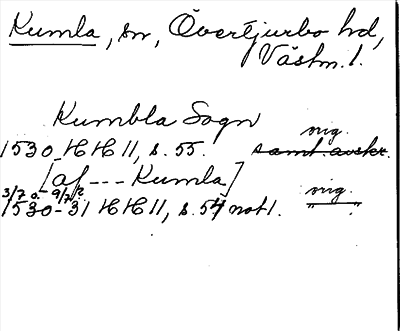 Kumla, sn, Övertjurbo hd,
Västm. l.
Kumbla Sogn
1530 HH II, s. 55. samt. avskr. orig.
[af --- Kumla]
3/7 o. 9/7
1530-31 HH II, s. 54 not 1. orig.